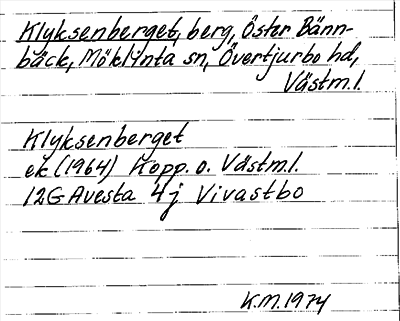 Klyksenberget, berg, Öster Bänn-
bäck, Möklinta sn, Övertjurbo hd,
Västm.l.
Klyksenberget
ek (1964) Kopp. o. Västm.l.
12G Avesta 4j Vivastbo
K.M. 1974